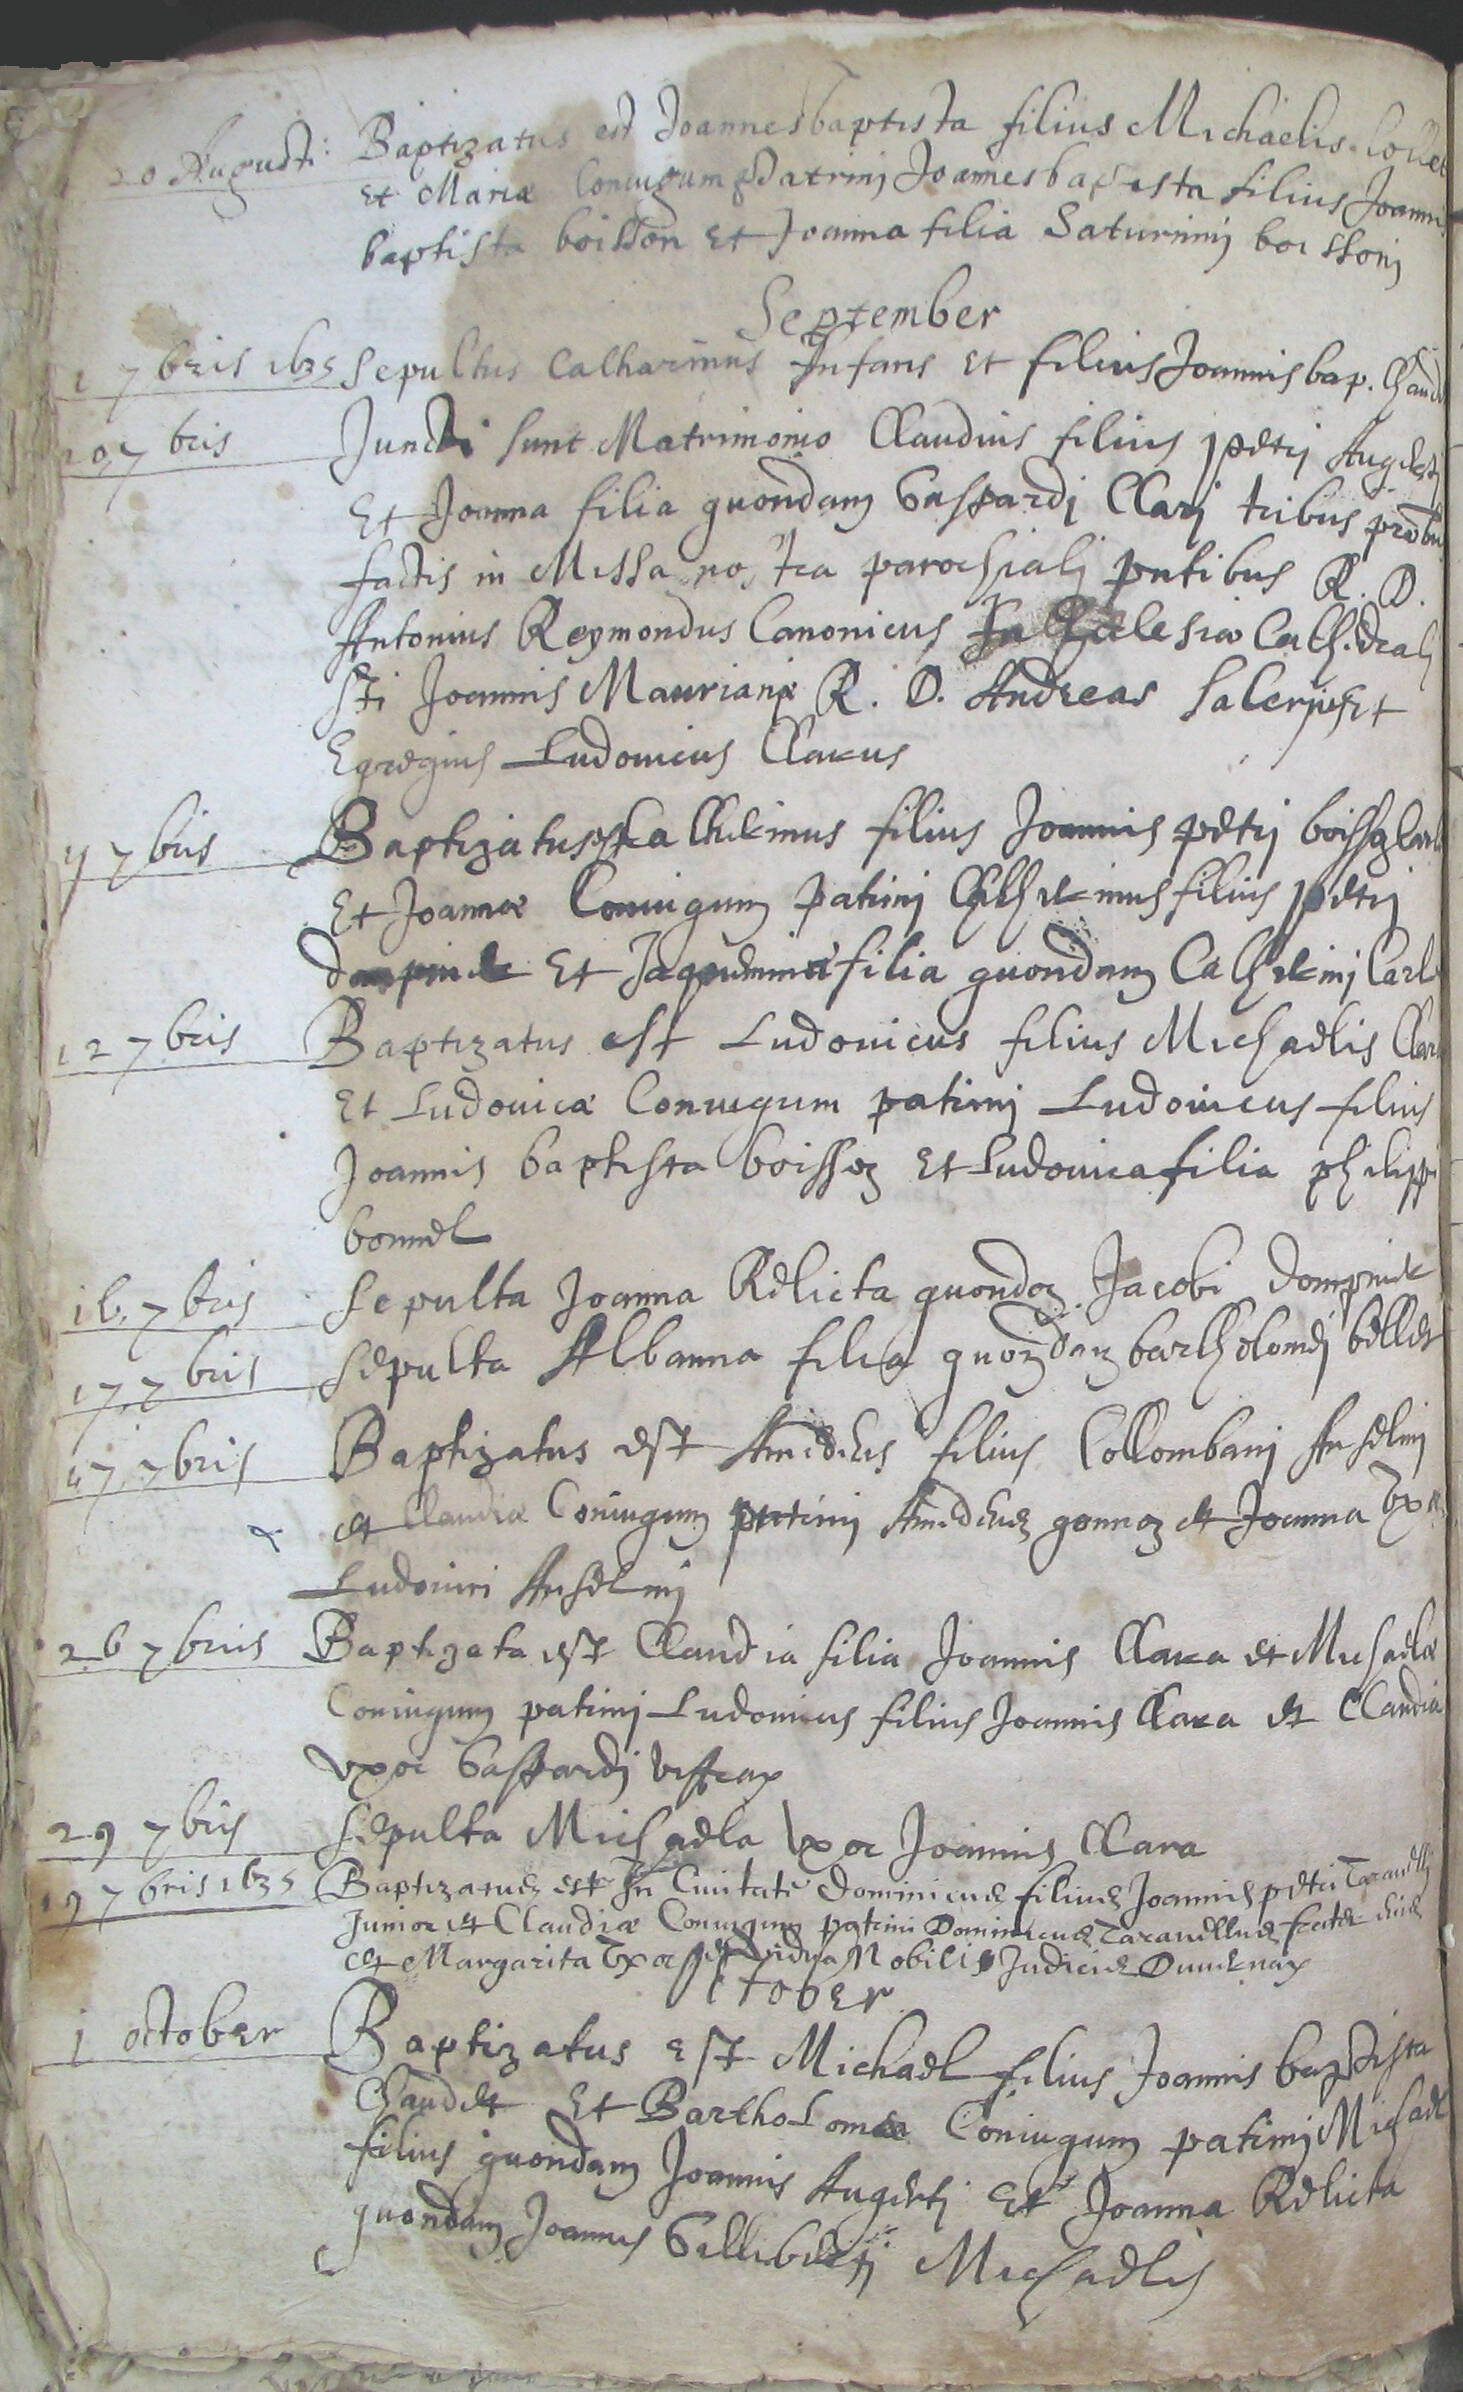 20 Augusti: Baptizatus est Joannesbaptista filius Michaelis
Et Mariæ Coniugum patrinj Joannesbaptista filius Joannis
baptista boisson Et Joanna filia Saturninj boissonj
September
1 7bris 1635 Sepultus Catharinus Infans Et filius Joannis bap.
7bris Juncti sunt Matrimonio Claudius filius petrj
Et Joanna filia quondam Gaspardj Clarj tribus
factis in Missa nostra parochialj pntibus R. D.
Antonius Reymondus Canonicus In Ecclesia Cathedralj
sti Joannis Maurianæ R. D. Andreas Et
Egregius Ludovicus Clarus
7bris Baptizatus filius Joannis petrj
Et Joannæ Coniugum patrinj filius petrj
Et filia quondam
12 7bris Baptizatus est Ludovicus filius Michaelis
Et Ludovicæ Coniugum patrinj Ludovicus filius
Joannis baptista boissoz Et Ludovica filia philippi
bonnel
16. 7bris Sepulta Joanna Relicta quondam Jacobi
17. 7bris Sepulta Albanna filia quondam bartholomej
17. 7bris Baptizatus est Amedeus filius Collombanj Anselmj
et Claudiæ Coniugum patrinj Amedeus et Joanna Vxor
Ludovici Anselmj
26 7bris Baptizata est Claudia filia Joannis Clara et Michaelæ
Coniugum patrinj Ludovicus filius Joannis Clara et Claudia
vxor Gaspardj
29 7bris Sepulta Michaela Vxor Joannis Clara
19 7bris 1635 Baptizatus est In Civitate Dominicus filius Joannis petri
Junior et Claudiæ Coniugum patrini Dominicus frater eius
et Margarita Vxor Nobilis
October
1 october Baptizatus est Michael filius Joannis baptista
Chaudet Et Bartholomeæ Coniugum patrinj Michael
filius quondam Joannis Augertj Et Joanna Relicta
quondam Joannis Gillibertj Michaelis